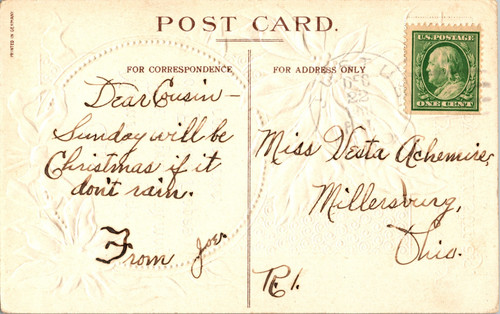 PRINTED IN GERMANY
POST CARD.
FOR CORRESPONDENCE
FOR ADDRESS ONLY
U.S. POSTAGE
ONE CENT
Dear Cousin –
Sunday will be
Christmas if it
don't rain.
From Joes
Miss Vesta Achemire,
Millersburg,
Ohio.
R. 1.